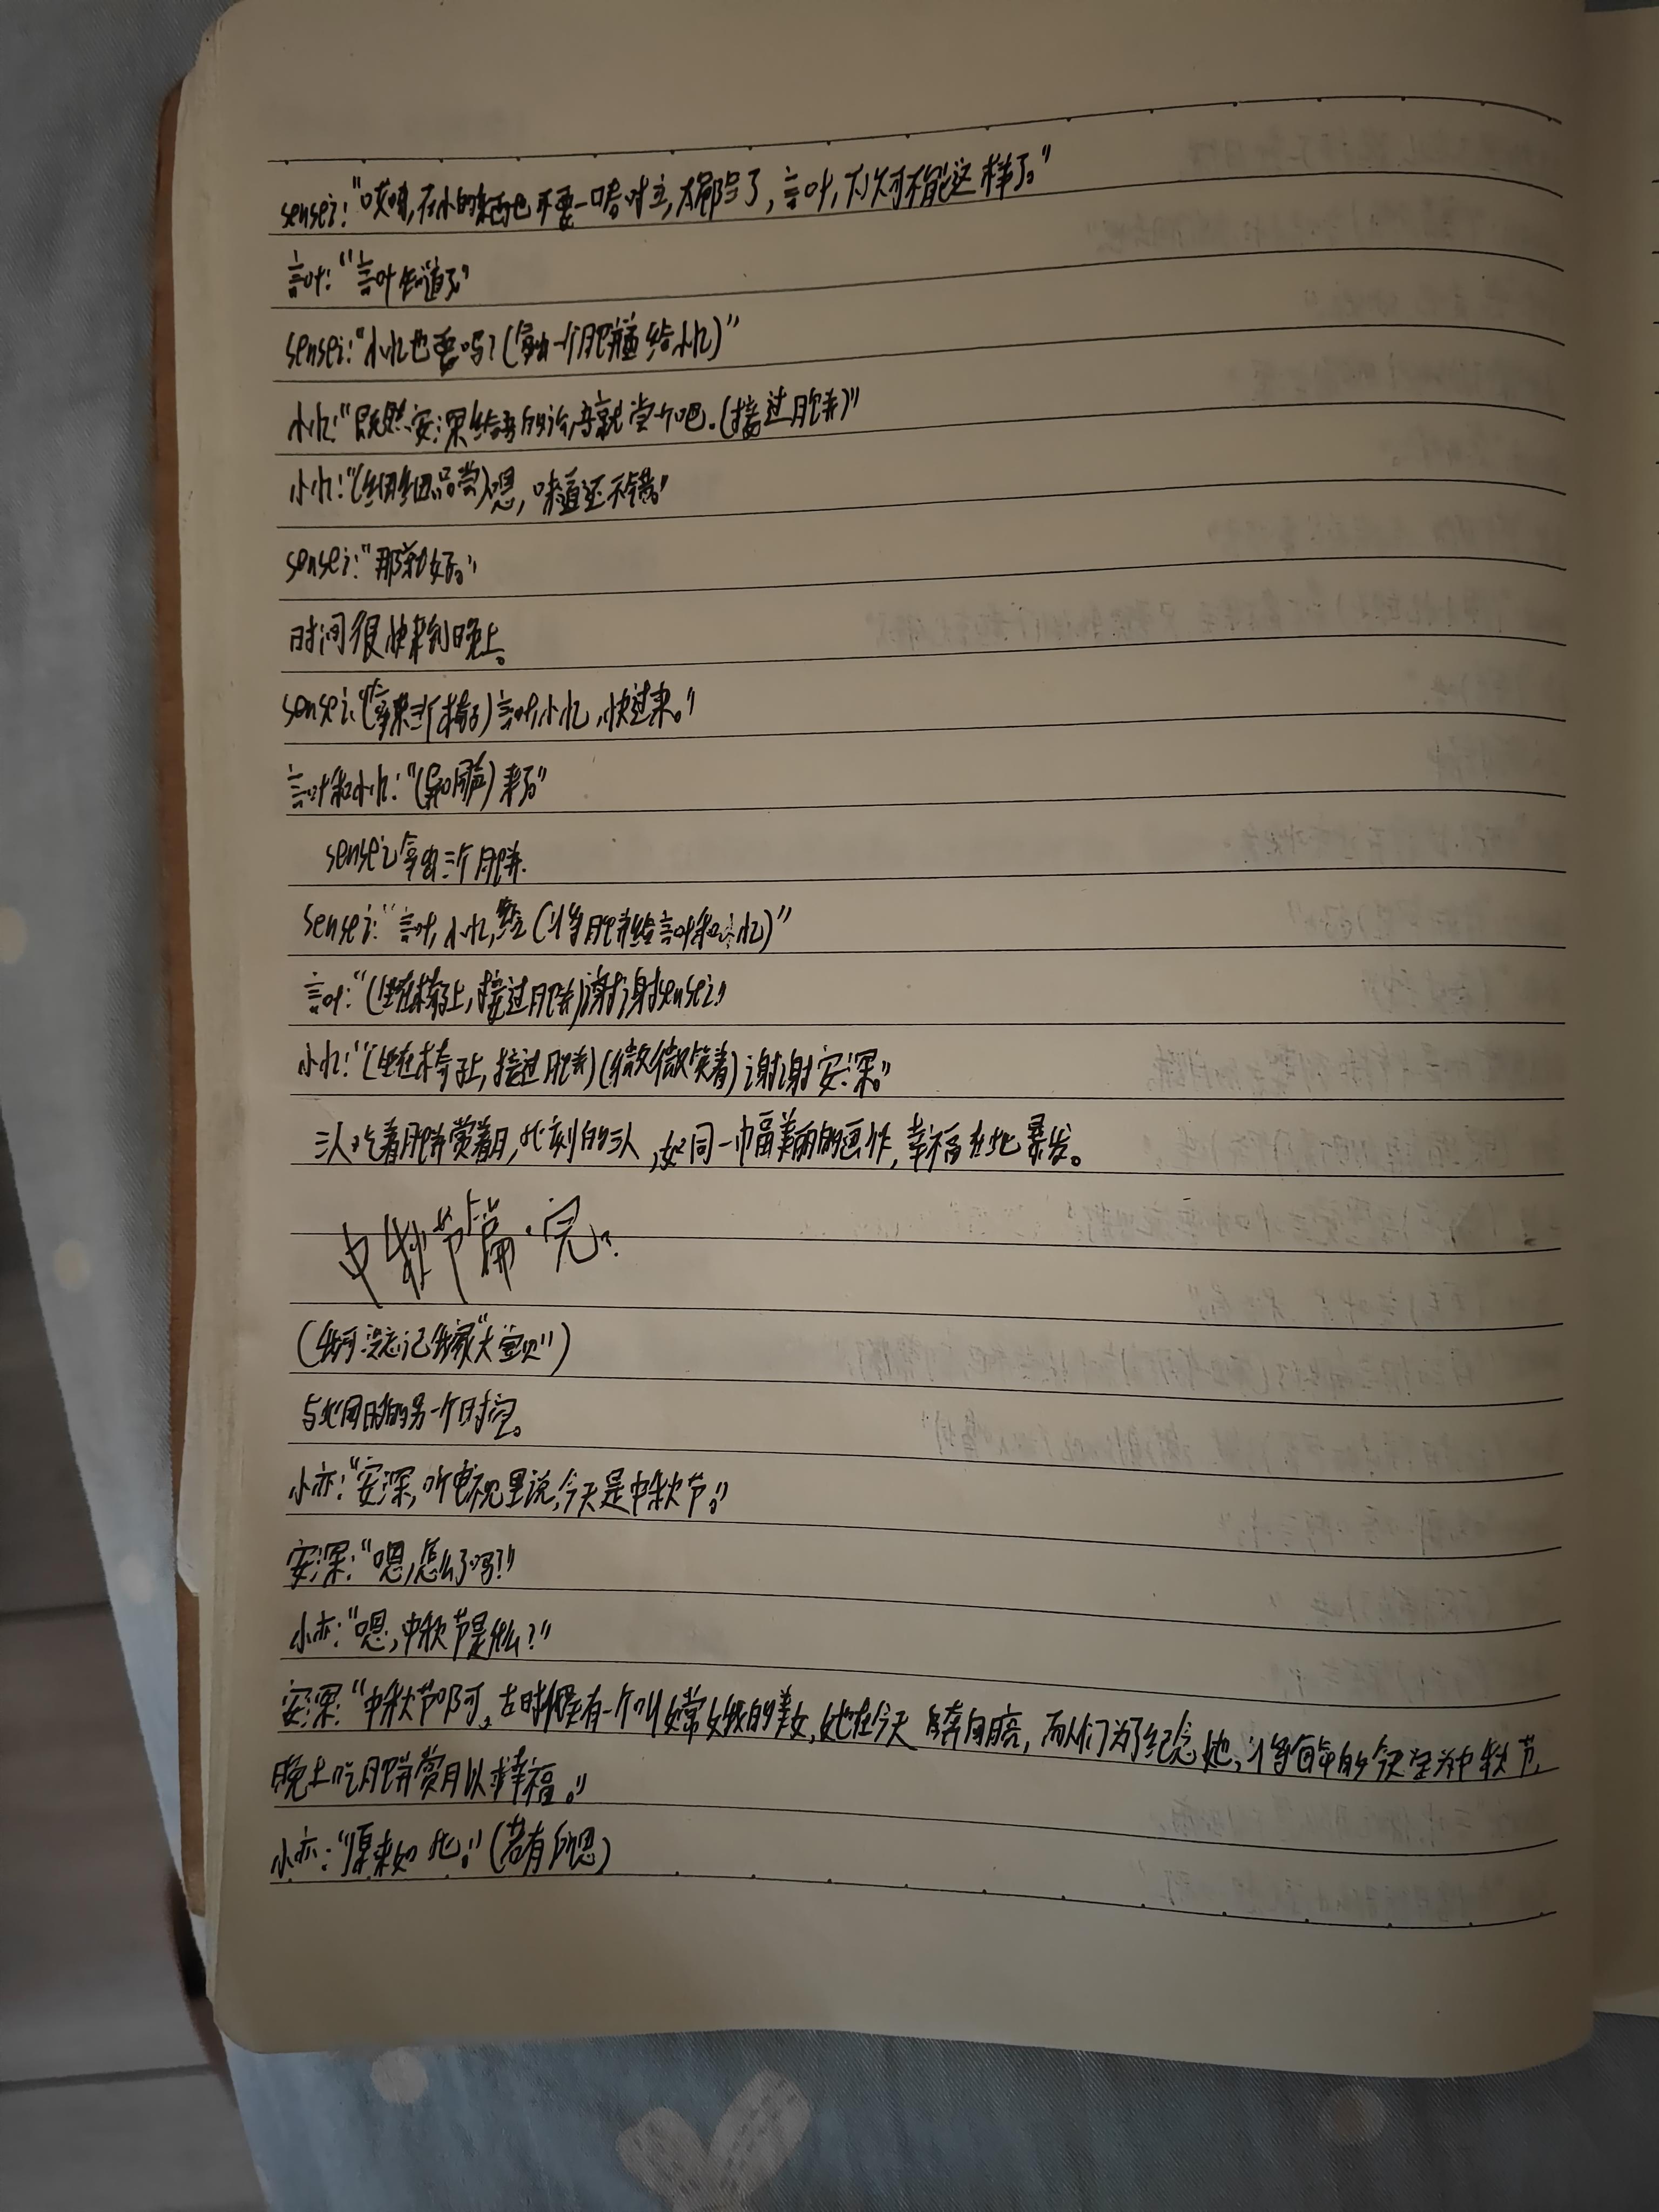 sensei:“哎呦,在小的东西也不要一口吞对言,太危险了,言叶,下次可不能这样了。”
言叶:“言叶知道了。”
sensei:“小忆也要吗?(拿出一个月饼递给小忆)”
小忆:“既然安深给我的话,我就尝一个吧.(接过月饼)”
小忆:“(细细品尝)嗯,味道还不错。”
sensei:“那就好。”
时间很快来到晚上。
sensei:“(拿来三个椅子)言叶,小忆,快过来。”
言叶和小忆:“(异口同声)来了。”
sensei拿出三个月饼.
sensei:“言叶,小忆,给(将月饼给言叶和小忆)”
言叶:“(坐在椅子上,接过月饼)谢谢sensei。”
小忆:“(坐在椅子上,接过月饼)(微微笑着)谢谢安深。”
三人吃着月饼赏着月,此刻的三人,如同一巾福美丽的画作,幸福在此暴发。
中秋节篇·完。
(我可没忘记我家“大宝贝”)
与此同时的另一个时空。
小亦:“安深,听电视里说,今天是中秋节。”
安深:“嗯,怎么了吗?”
小亦:“嗯,中秋节是什么?”
安深:“中秋节啊,古时候有一个叫嫦娥的美女,她在今天奔向月亮,而人们为了纪念她,将每年的今天定为中秋节,
晚上吃月饼赏月以求幸福。”
小亦:“原来如此。”(若有所思)